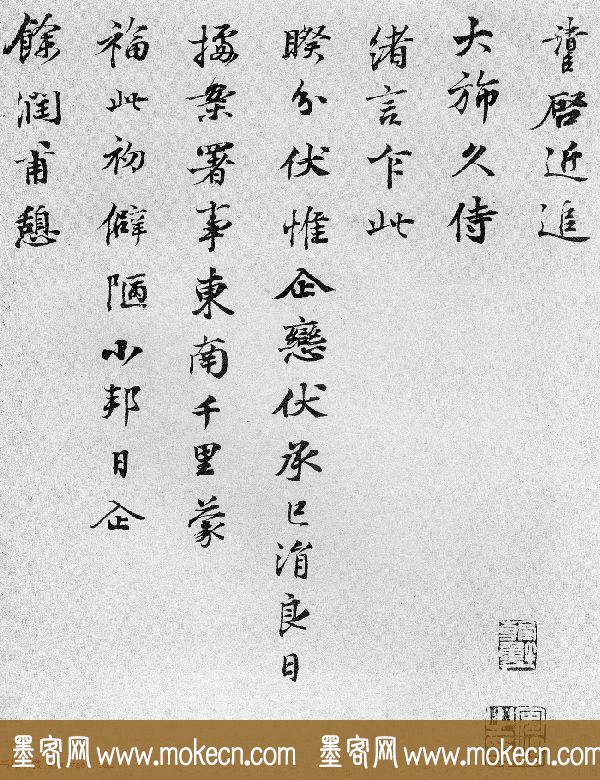 啓近追
大旆久侍
緒言乍此
睽分伏惟企戀伏承已涓良日
據案署事東南千里蒙
福此初僻陋小邦日企
餘潤甫憩
墨客网 www.mokecn.com 墨客网 www.mokecn.com